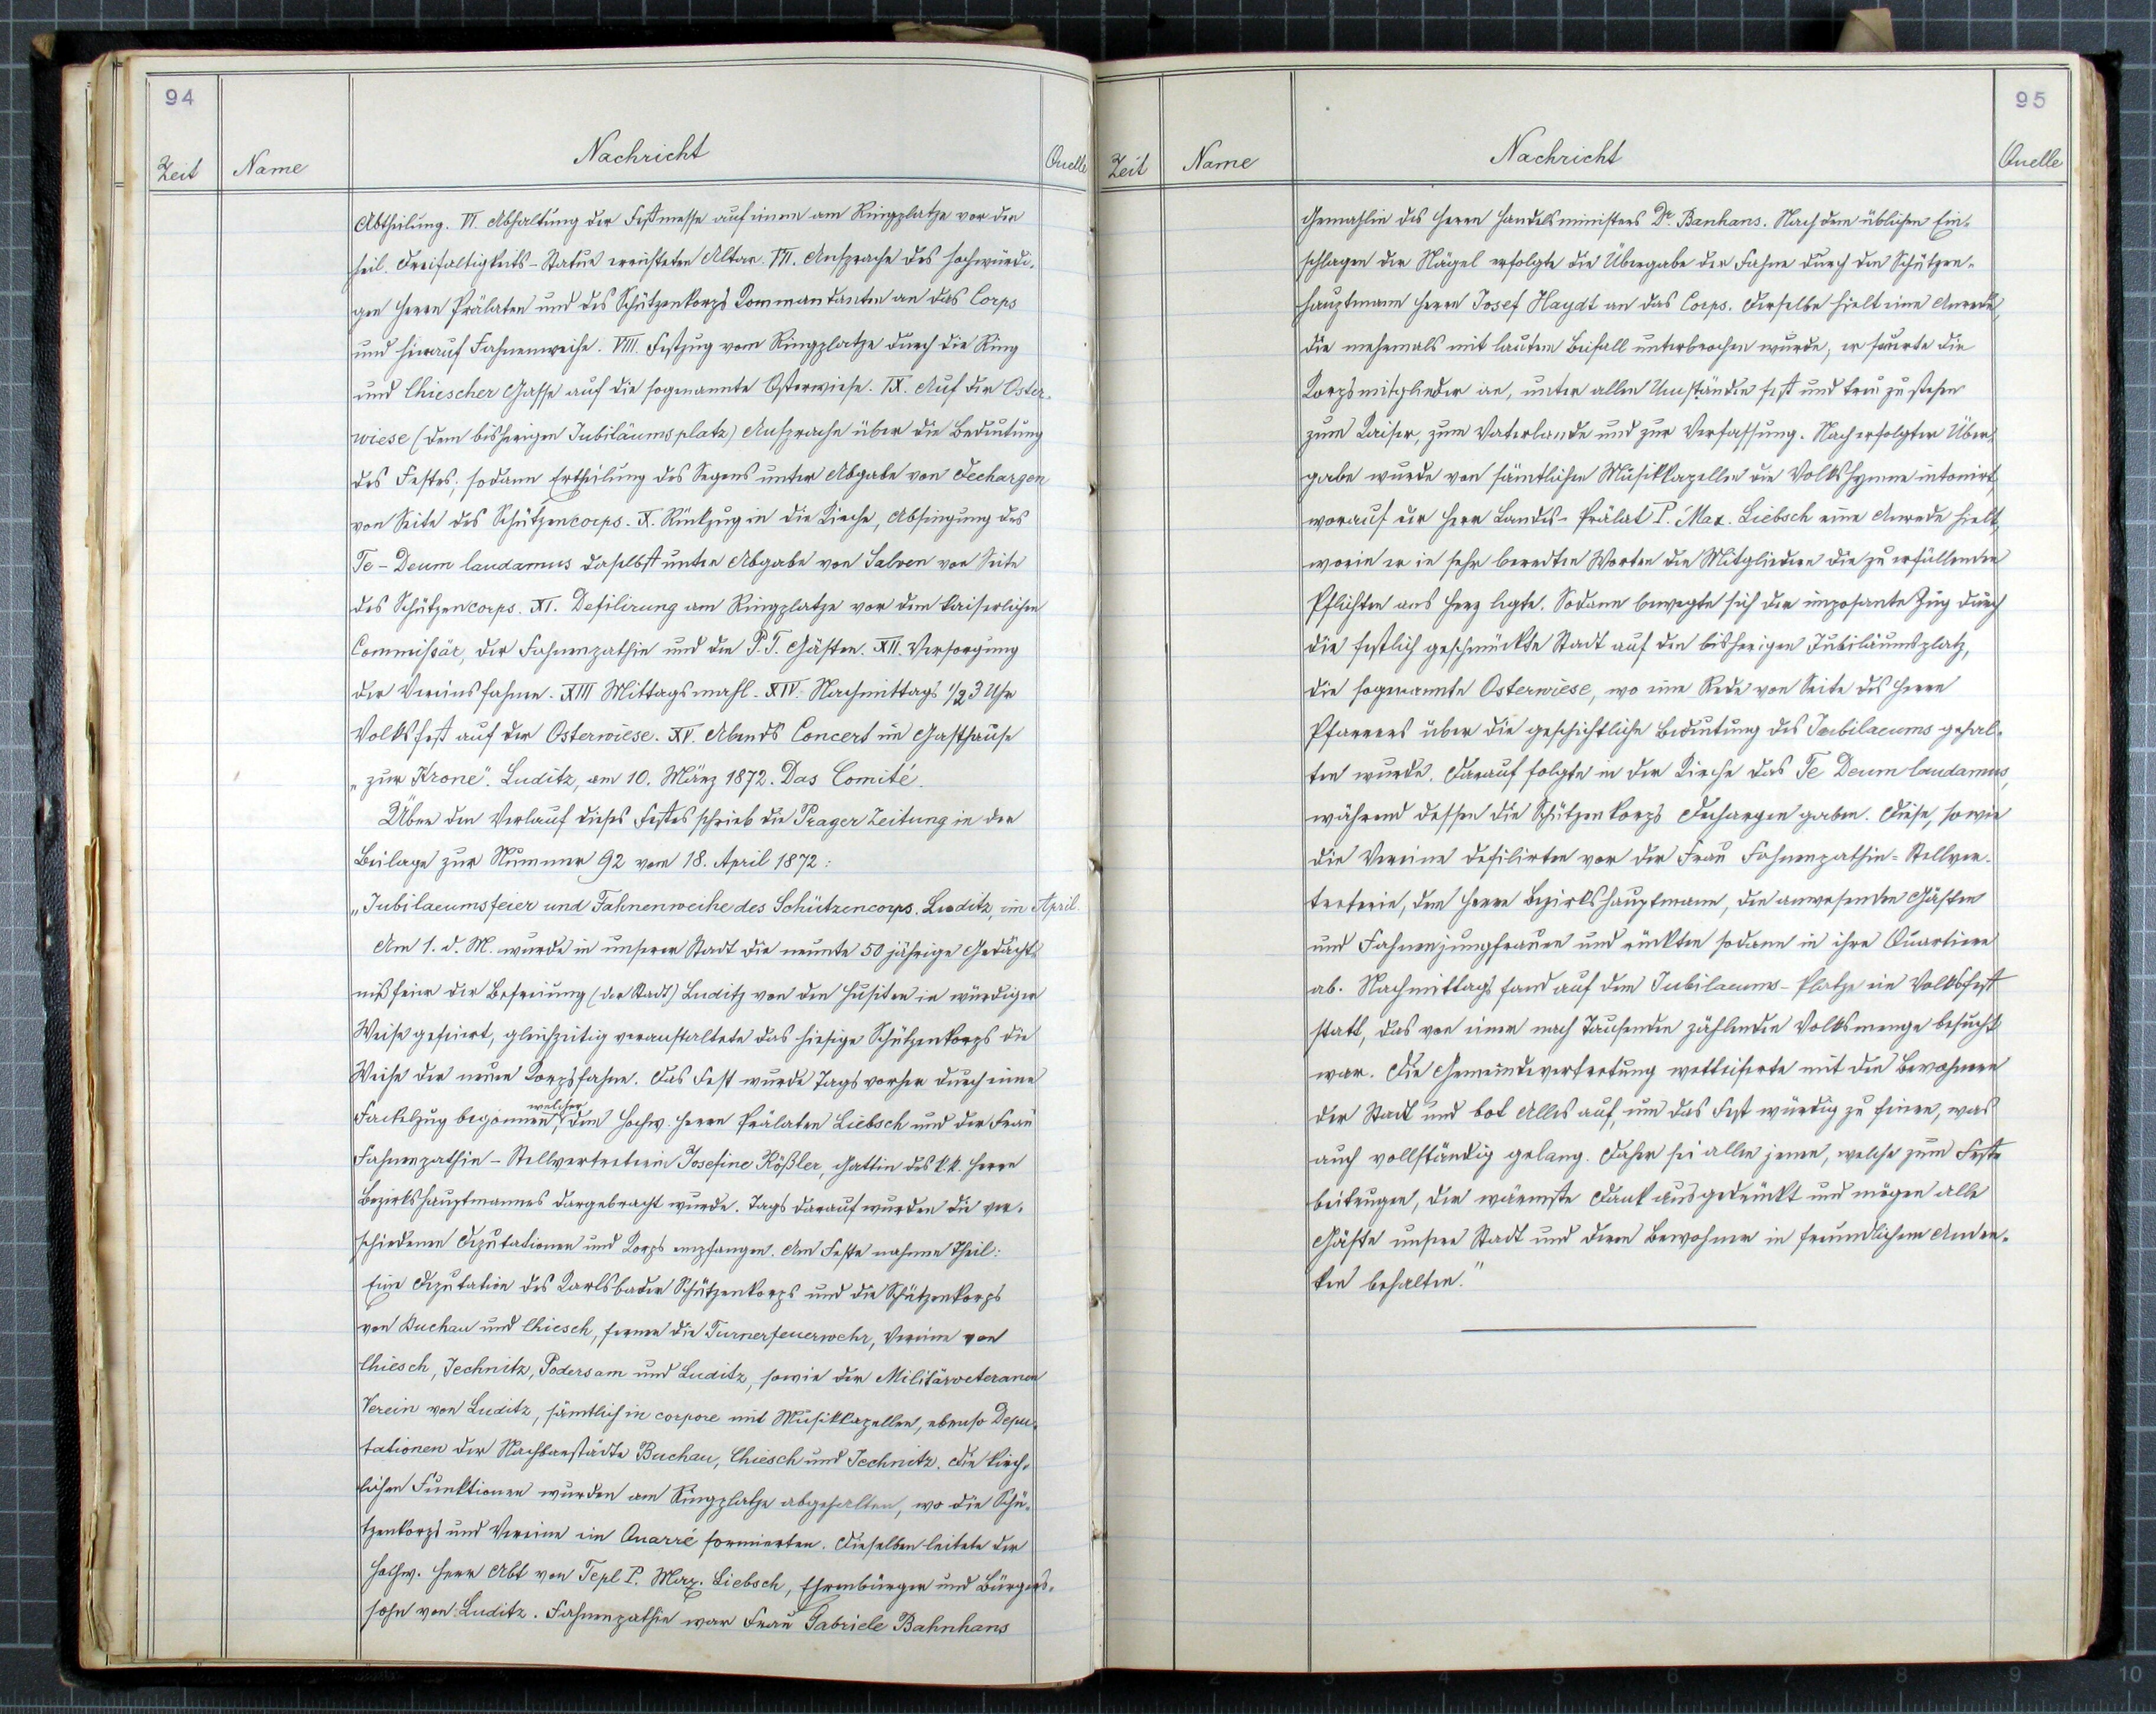 94
Zeit Name Nachricht Quelle
Abtheilung. VI. Abhaltung der Festmesse auf einem am Ringplatze vor der
heil. Dreifaltigkeits-Statue errichteten Altar. VII. Ansprache des hochwürdi-
gen Herrn Prälaten und des Schützenkorps Kommandanten an das Corps
und hierauf Fahnenweihe. VIII. Festzug vom Ringplatze durch die Ring
und Chiescher Gasse auf die sogenannte Osterwiese. IX. Auf der Oster-
wiese (dem bisherigen Jubiläumsplatz) Ansprache über die Bedeutung
des Festes; sodann Ertheilung des Segens unter Abgabe von Dechargen
von Seite des Schützencorps. X. Rückzug in die Kirche, Absingung des
Te-Deum laudamus daselbst unter Abgabe von Salven von Seite
des Schützencorps. XI. Defilirung am Ringplatze vor dem kaiserlichen
Commissär, der Fahnenpathin und den P. T. Gästen. XII. Versorgung
der Vereinsfahnen. XIII Mittagsmahl. XIV. Nachmittags 1/2 3 Uhr
Volksfest auf der Osterwiese. XV. Abends Concert im Gasthause
„zur Krone“. Luditz, am 10. März 1872. Das Comité.
Über den Verlauf dieses Festes schrieb die Prager Zeitung in der
Beilage zur Nummer 92 vom 18. April 1872:
„Jubilaeumsfeier und Fahnenweihe des Schützencorps. Luditz, im April.
Am 1. d. M. wurde in unserer Stadt die neunte 50 jährige Gedächt-
nisfeier der Befreiung (der Stadt) Luditz von den Husiten in würdiger
Weise gefeiert, gleichzeitig veranstaltete das hiesige Schützenkorps die
Weihe der neuen Korpsfahne. Das Fest wurde Tags vorher durch einen
Fackelzug begonnen, welcher dem hochw. Herrn Prälaten Liebsch und der Frau
Fahnenpathin-Stellvertreterin Josefine Rößler, Gattin des k.k. Herrn
Bezirkshauptmannes dargebracht wurde. Tags darauf wurden die ver-
schiedenen Deputationen und Korps empfangen. Am Feste nahmen Theil:
Eine Deputation des Karlsbader Schützenkorps und die Schützenkorps
von Buchau und Chiesch, ferner die Turnerfeuerwehr, Vereine von
Chiesch, Jechnitz, Podersam und Luditz, sowie der Militärveteranen
Verein von Luditz, sämtlich in corpore mit Musikkapellen, ebenso Depu-
tationen der Nachbarstädte Buchau, Chiesch und Jechnitz. Die kirch-
lichen Funktionen wurden am Ringplatze abgehalten, wo die Schü-
tzenkorps und Vereine ein Quarré formierten. Dieselben leitete der
hochw. Herr Abt von Tepl P. Max. Liebsch, Ehrenbürger und Bürgers-
sohn von Luditz. Fahnenpathin war Frau Gabriele Bahnhans
95
Zeit Name Nachricht Quelle
Gemahlin des Herrn Handelsministers Dr. Banhans. Nach dem üblichen Ein-
schlagen der Nägel erfolgte die Übergabe der Fahne durch den Schützen-
hauptmann Herrn Josef Haydt an das Corps. Derselbe hielt eine Anrede,
die mehrmals mit lautem Beifall unterbrochen wurde; er feuerte die
Korpsmitglieder an, unter allen Umständen fest und treu zu stehen
zum Kaiser, zum Vaterlande und zur Verfassung. Nach erfolgter Über-
gabe wurde von sämtlichen Musikkapellen die Volkshymne intonirt,
worauf der Herr Landes-Prälat P. Max. Liebsch eine Anrede hielt,
worin er in sehr beredten Worten den Mitgliedern die zu erfüllenden
Pflichten ans Herz legte. Sodann bewegte sich der imposante Zug durch
die festlich geschmückte Stadt auf den bisherigen Jubiläumsplatz,
die sogenannte Osterwiese, wo eine Rede von Seite des Herrn
Pfarrers über die geschichtliche Bedeutung des Jubilaeums gehal-
ten wurde. Darauf folgte in der Kirche das Te Deum laudamus,
während dessen die Schützenkorps Dechargen gaben. Diese, sowie
die Vereine defilirten vor der Frau Fahnenpathin-Stellver-
treterin, dem Herrn Bezirkshauptmann, den anwesenden Gästen
und Fahnenjungfrauen und rückten sodann in ihre Quartiere
ab. Nachmittags fand auf dem Jubilaeums-Platze ein Volksfest
statt, das von einer nach Tausenden zählenden Volksmenge besucht
war. Die Gemeindevertretung wetteiferte mit den Bewohnern
der Stadt und bot Alles auf, um das Fest würdig zu feiern, was
auch vollständig gelang. Daher sei allen jenen, welche zum Feste
beitrugen, der wärmste Dank ausgedrückt und mögen alle
Gäste unsere Stadt und deren Bewohner in freundlichem Anden-
ken behalten.“